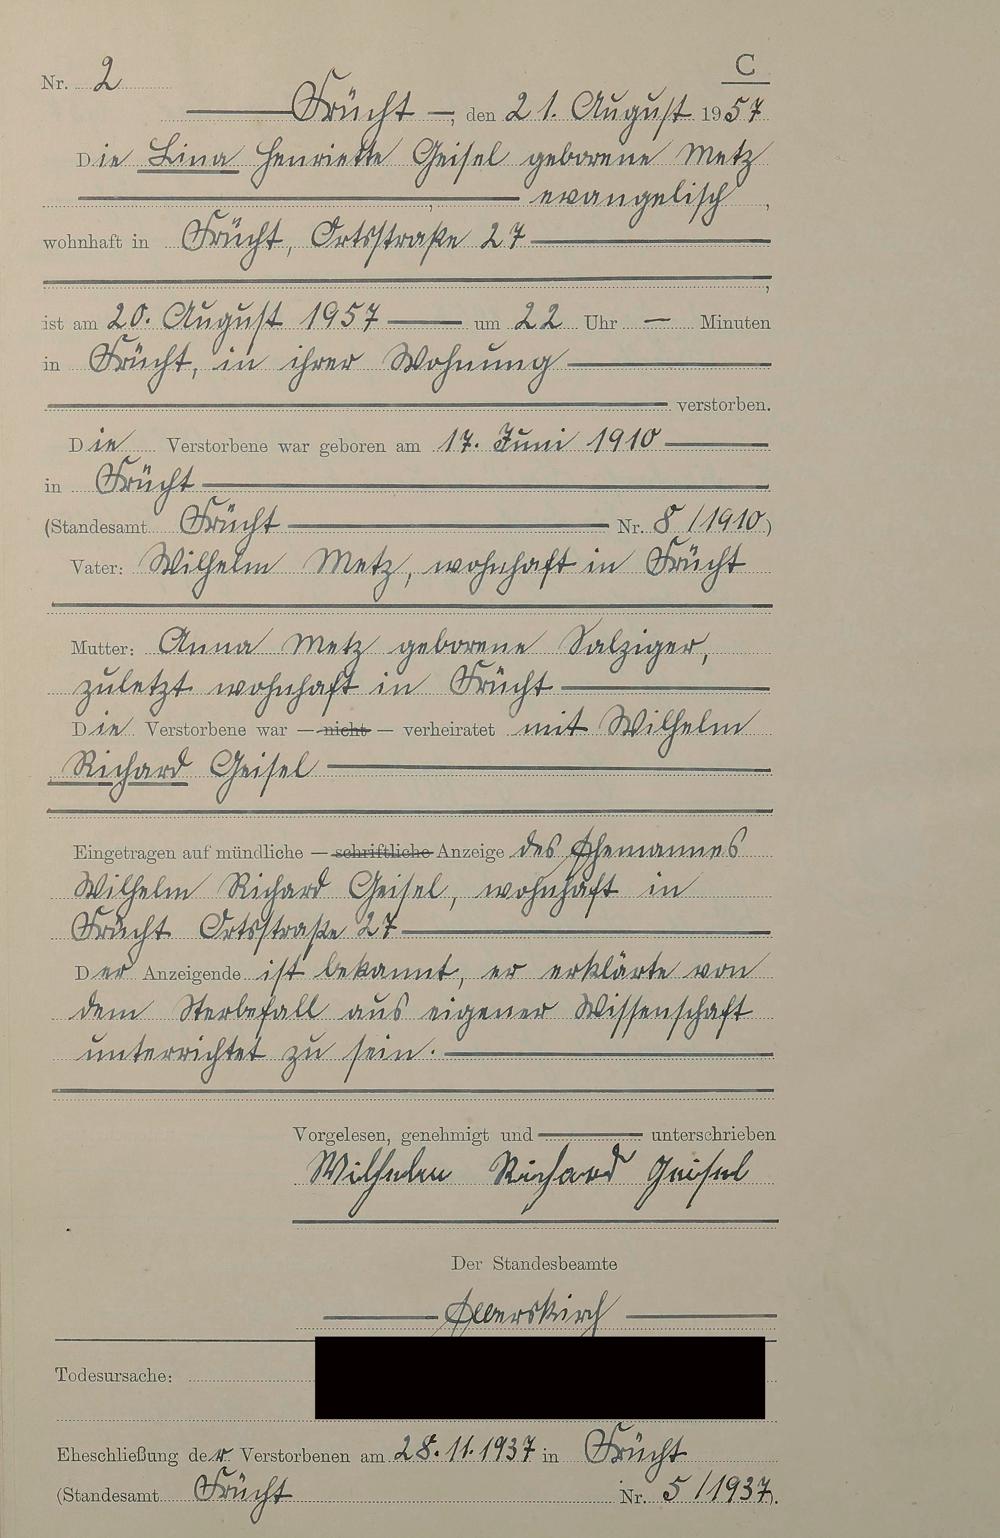 C
Nr. 2
Frücht, den 21. August 1957
Die Lina Henriette Geisel geborene Metz
evangelisch,
wohnhaft in Frücht, Ortsstraße 27
,
ist am 20. August 1957 um 22 Uhr — Minuten
in Frücht, in ihrer Wohnung
verstorben.
Die Verstorbene war geboren am 17. Juni 1910
in Frücht
(Standesamt Frücht Nr. 8/1910)
Vater: Wilhelm Metz, wohnhaft in Frücht
Mutter: Anna Metz geborene Salziger,
zuletzt wohnhaft in Frücht
Die Verstorbene war — nicht — verheiratet mit Wilhelm
Richard Geisel
Eingetragen auf mündliche — schriftliche Anzeige des Ehemannes
Wilhelm Richard Geisel, wohnhaft in
Frücht Ortsstraße 27
Der Anzeigende ist bekannt, er erklärte von
dem Sterbefall aus eigener Wissenschaft
unterrichtet zu sein.
Vorgelesen, genehmigt und unterschrieben
Wilhelm Richard Geisel
Der Standesbeamte
Todesursache:
Eheschließung der Verstorbenen am 28.11.1937 in Frücht
(Standesamt Frücht Nr. 5/1937).